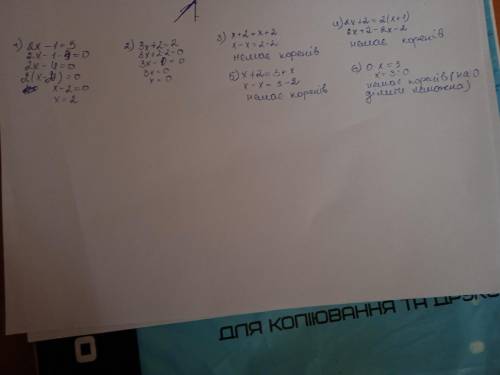 1) 2x - 1 = 3
2x - 1 - 3 = 0
2x - 4 = 0
2(x - 2) = 0
x - 2 = 0
x = 2
2) 3x + 2 = 2
3x + 2 - 2 = 0
3x - 0 = 0
3x = 0
x = 0
3) x + 2 = x + 2
x - x = 2 - 2
немає коренів
4) 2x + 2 = 2(x + 1)
2x + 2 - 2x - 2
немає коренів
5) x + 2 = 3 + x
x - x = 3 - 2
немає коренів
6) 0 · x = 3
x = 3 : 0
немає коренів (на 0
ділити неможна)
ДЛЯ КОПІЮВАННЯ ТА ДРУКУ